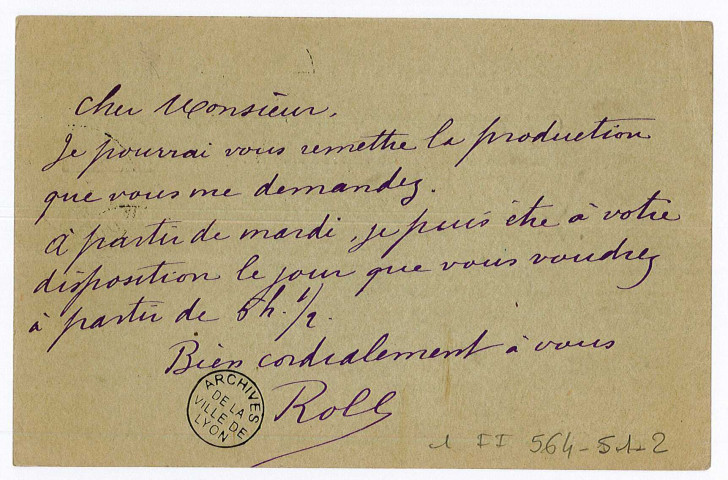 Cher Monsieur,
Je pourrai vous remettre la production
que vous me demandez.
à partir de mardi, je puis être à votre
disposition le jour que vous voudrez
à partir de 6h. 1/2.
Bien cordialement à vous
Roll
ARCHIVES
DE LA
VILLE DE
LYON
1 II 564-51-2